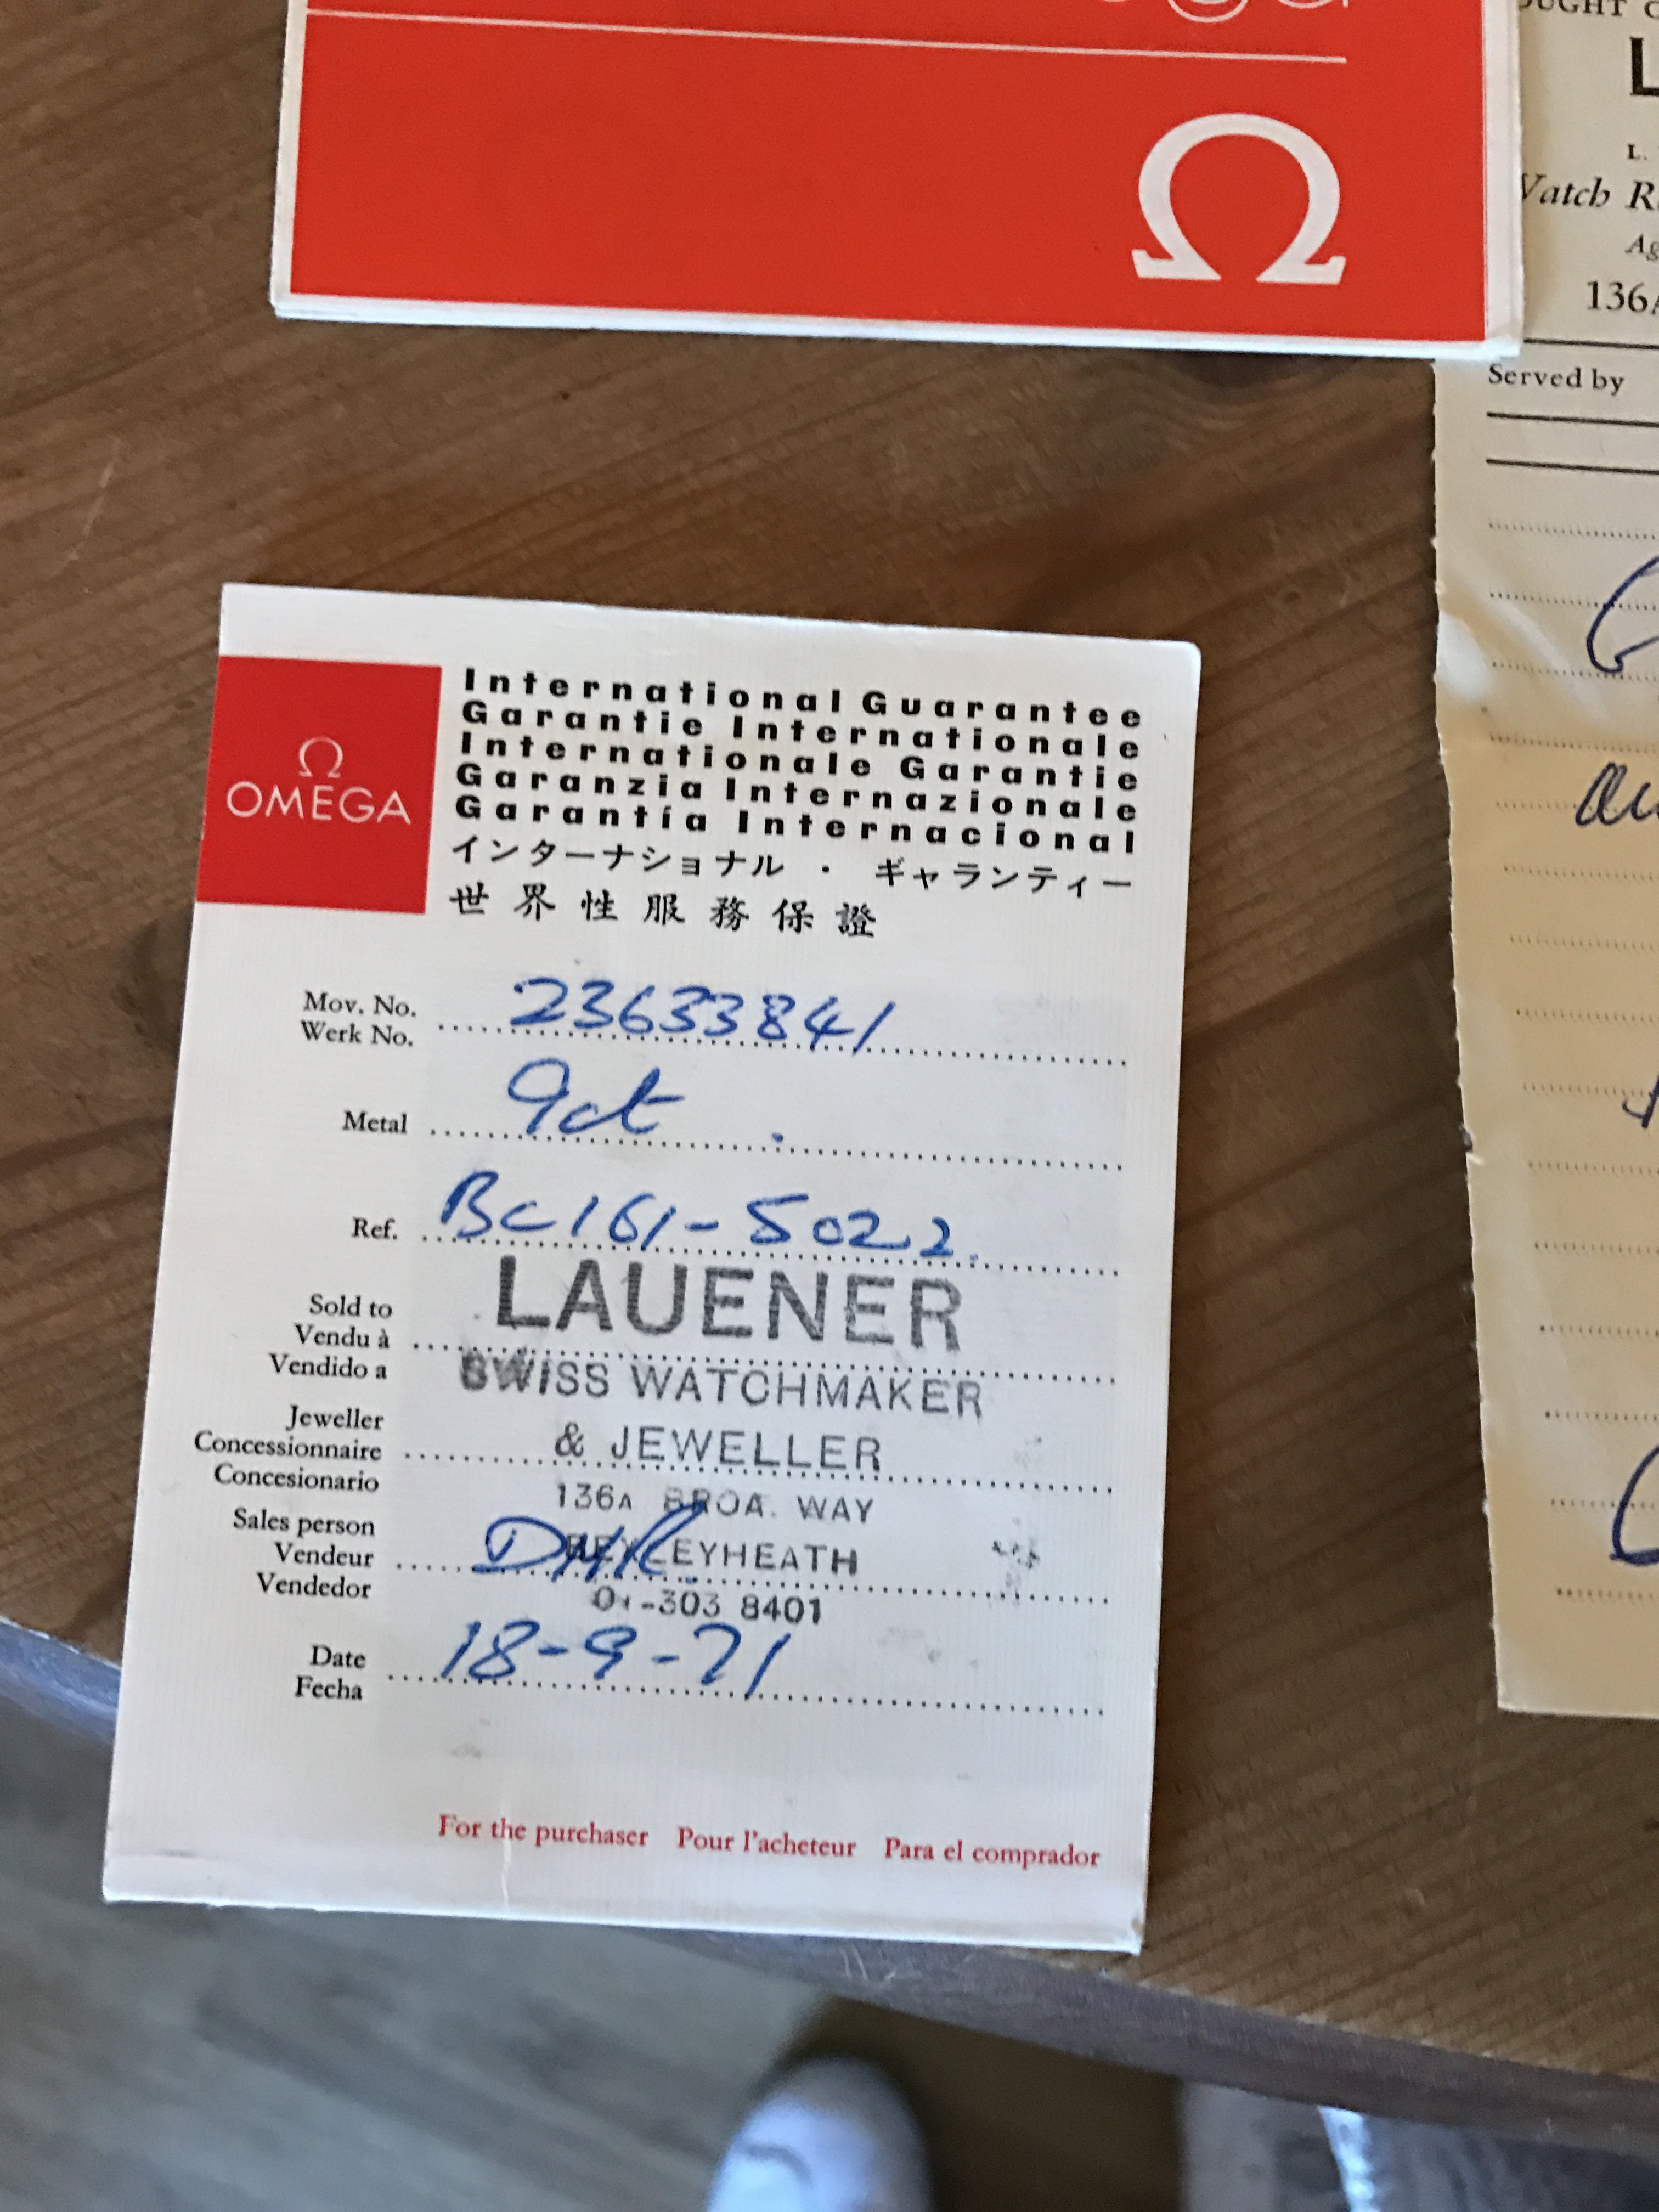 Ω
L
L.
Watch R
Ag
136A
Served by
Ω
OMEGA
International Guarantee
Garantie Internationale
Internationale Garantie
Garanzia Internazionale
Garantía Internacional
インターナショナル ・ ギャランティー
世界性服務保證
Mov. No. 23633841
Werk No.
Metal 9ct
Ref. BC161-5022
LAUENER
Sold to
Vendu à
Vendido a
SWISS WATCHMAKER
Jeweller
Concessionnaire
Concesionario
& JEWELLER
136A BROA. WAY
Sales person
Vendeur
Vendedor
BEXLEYHEATH
01-303 8401
Date 18-9-71
Fecha
For the purchaser Pour l'acheteur Para el comprador